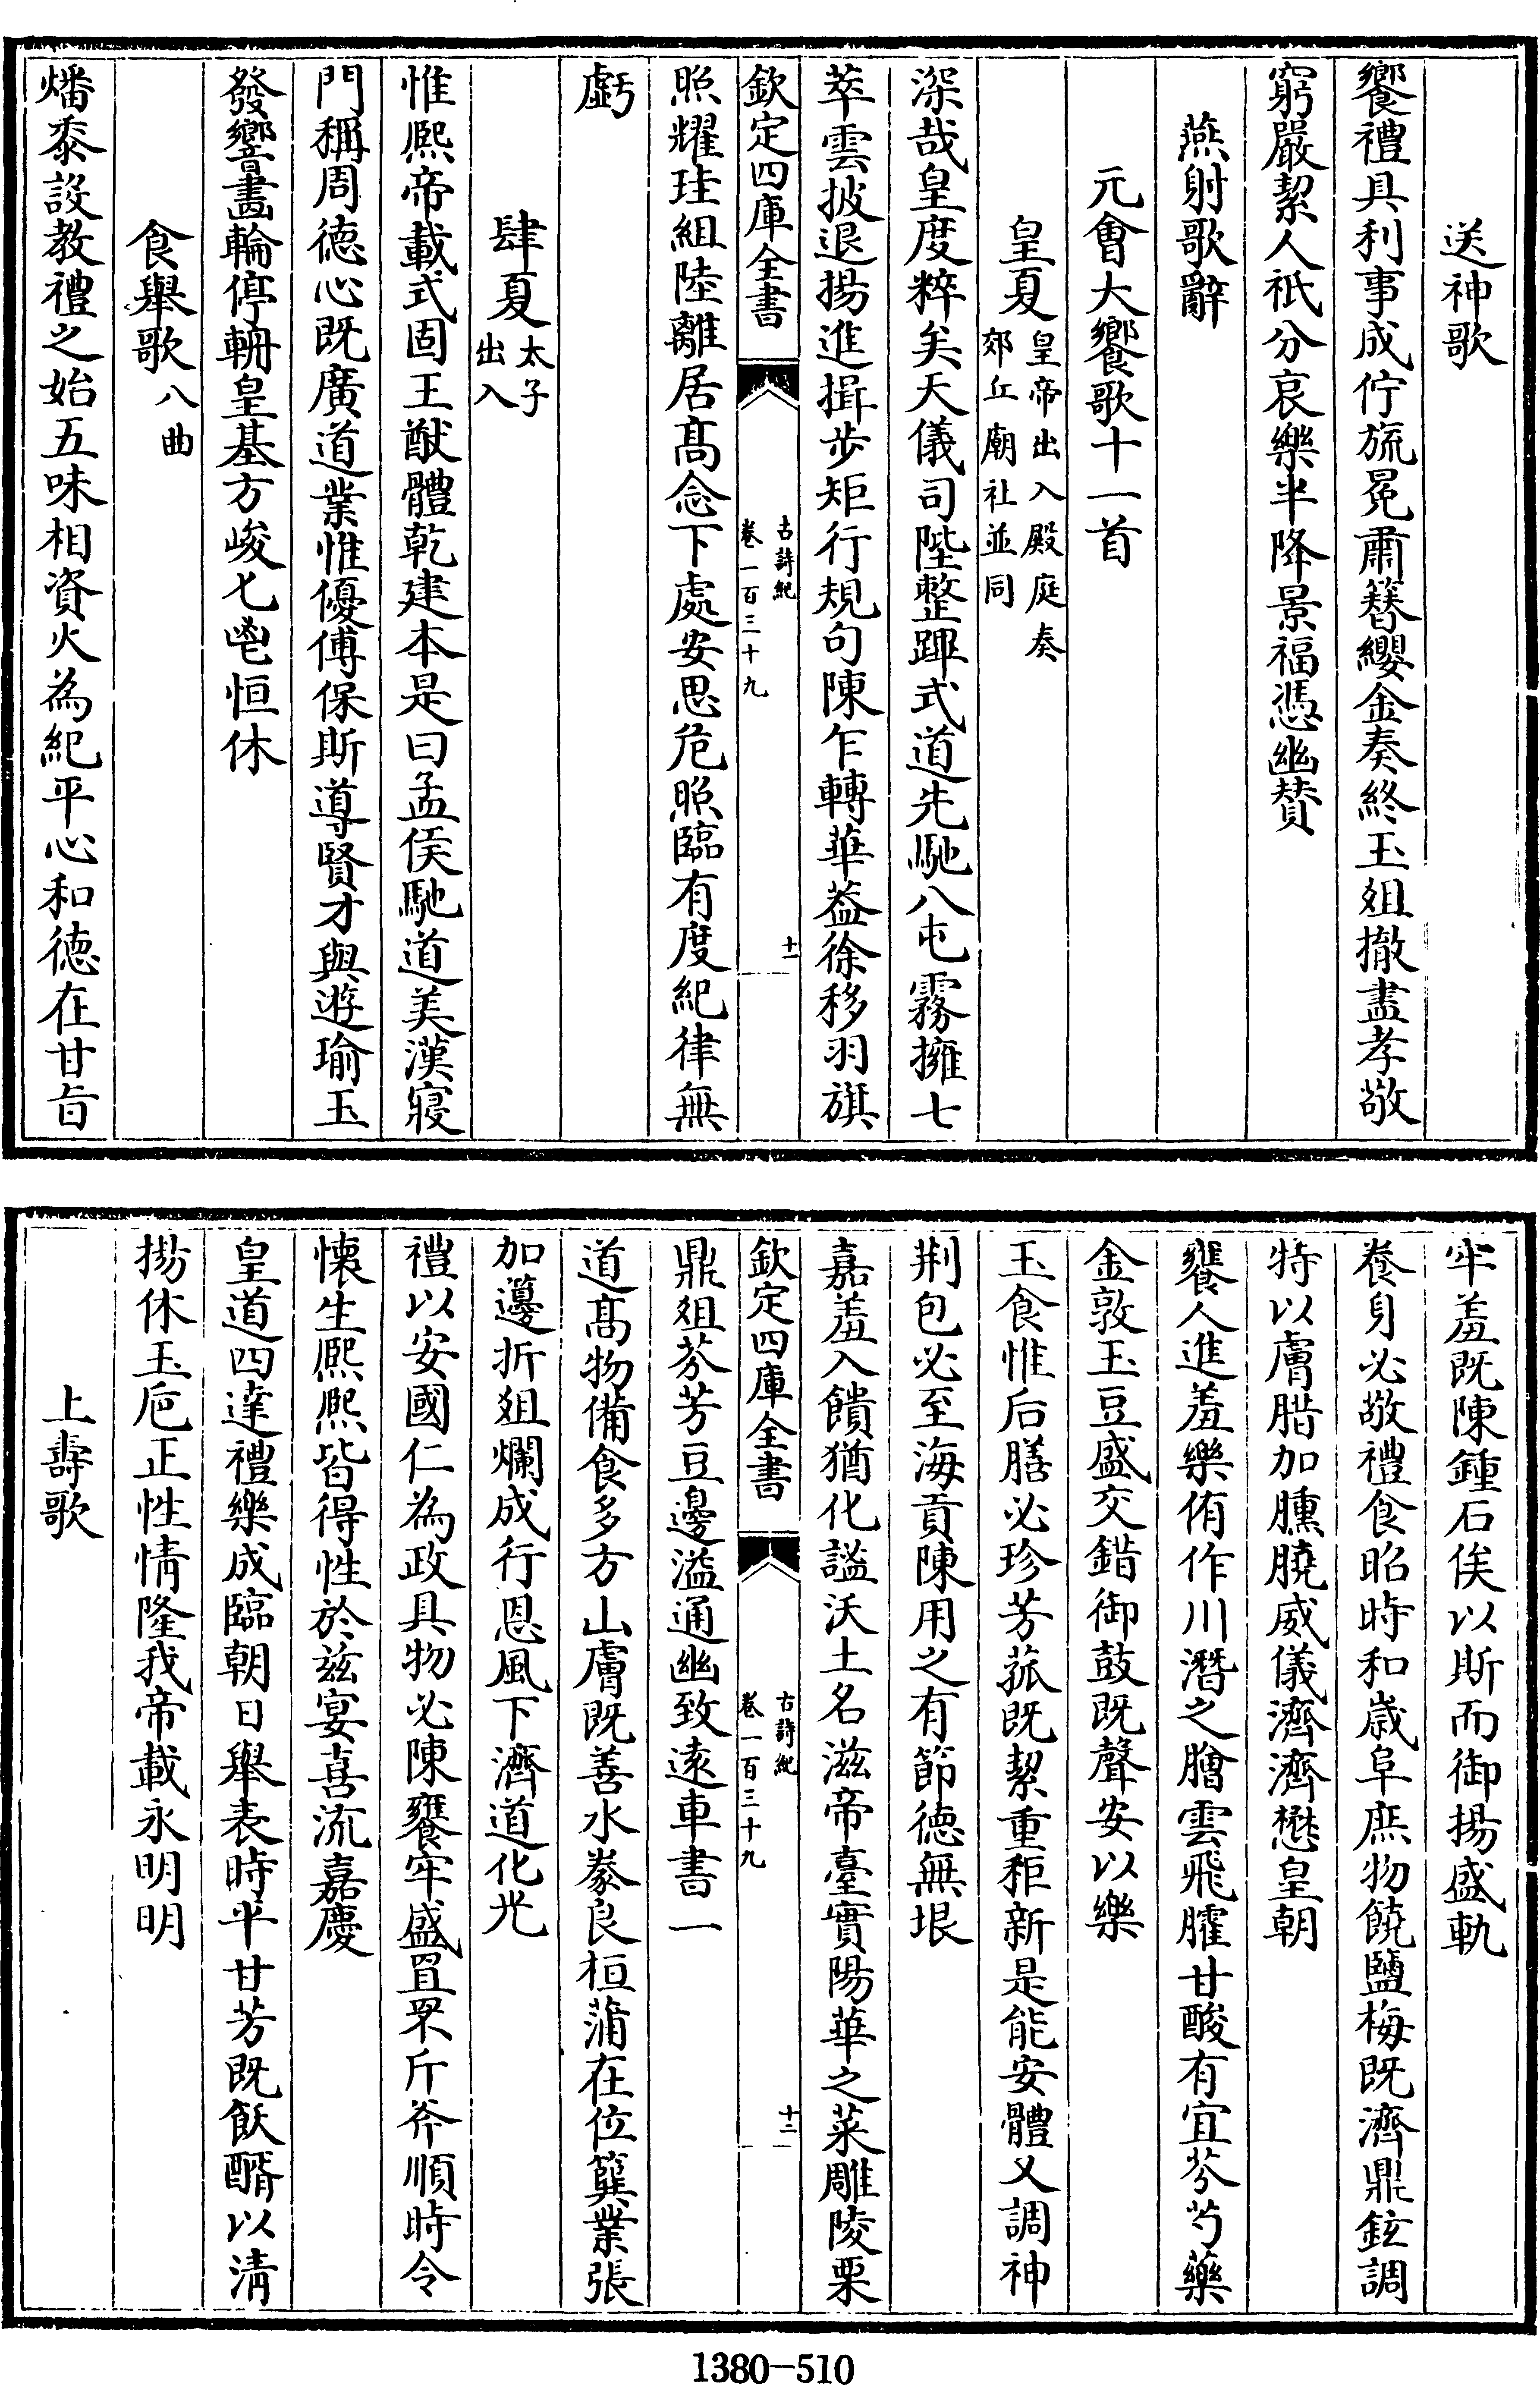 送神歌
饗禮具利事成佇旒冕肅簪纓金奏終玉俎撤盡孝敬
窮嚴絜人祇分哀樂半降景福憑幽贊
燕射歌辭
元會大饗歌十一首
皇夏皇帝出入殿庭奏郊丘廟社並同
深哉皇度粹矣天儀司陛整蹕式道先馳八屯霧擁七
萃雲披退揚進揖步矩行規句陳乍轉華葢徐移羽旗
欽定四庫全書
古詩紀
卷一百三十九
十一
照耀珪組陸離居髙念下處安思危照臨有度紀律無
虧
肆夏太子出入
惟熈帝載式固王猷體乾建本是曰孟侯馳道美漢寢
門稱周德心既廣道業惟優傅保斯導賢才與遊瑜玉
發響畫輪停輈皇基方峻匕鬯恒休
食舉歌八曲
燔黍設教禮之始五味相資火為紀平心和德在甘旨
牢羞既陳鍾石俟以斯而御揚盛軌
養身必敬禮食昭時和歳阜庶物饒鹽梅既濟鼎鉉調
特以膚腊加臐膮威儀濟濟懋皇朝
饔人進羞樂侑作川潛之膾雲飛臛甘酸有宜芬芍藥
金敦玉豆盛交錯御鼓既聲安以樂
玉食惟后膳必珍芳菰既絜重秬新是能安體又調神
荆包必至海貢陳用之有節德無垠
嘉羞入饋猶化謐沃土名滋帝臺實陽華之菜雕陵栗
欽定四庫全書
古詩紀
卷一百三十九
十二
鼎俎芬芳豆邊溢通幽致遠車書一
道髙物備食多方山膚既善水豢良桓蒲在位簨業張
加邊折俎爛成行恩風下濟道化光
禮以安國仁為政具物必陳饔牢盛罝罘斤斧順時令
懷生熈熈皆得性於兹宴喜流嘉慶
皇道四達禮樂成臨朝日舉表時平甘芳既飫醑以清
揚休玉巵正性情隆我帝載永明明
上壽歌
1380-510